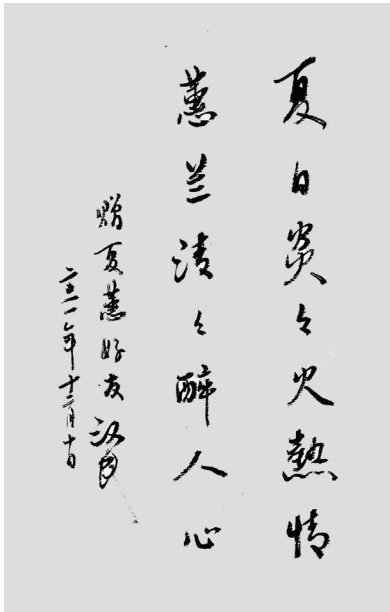 夏日炎々火熱情
蕙兰淩々醉人心
赠夏蕙好友
二〇一一年十二月十日